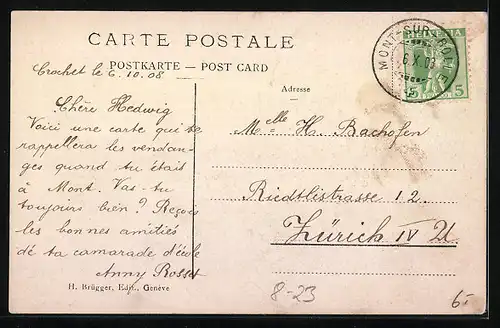 CARTE POSTALE
POSTKARTE — POST CARD
HELVETIA
5 5
MONT-SUR-ROLLE
6.X.08
Crochet le 6.10.08
Chère Hedwig
Voici une carte qui te
rappellera les vendan-
ges quand tu étais
à Mont. Vas-tu
toujours bien? Reçois
les bonnes amitiés
de ta camarade d'école
Anny Rosset
Adresse
Melle H. Bachofen
Riedtlistrasse 12.
Zürich IV U.
H. Brügger, Edit., Genève
8-23
6.-